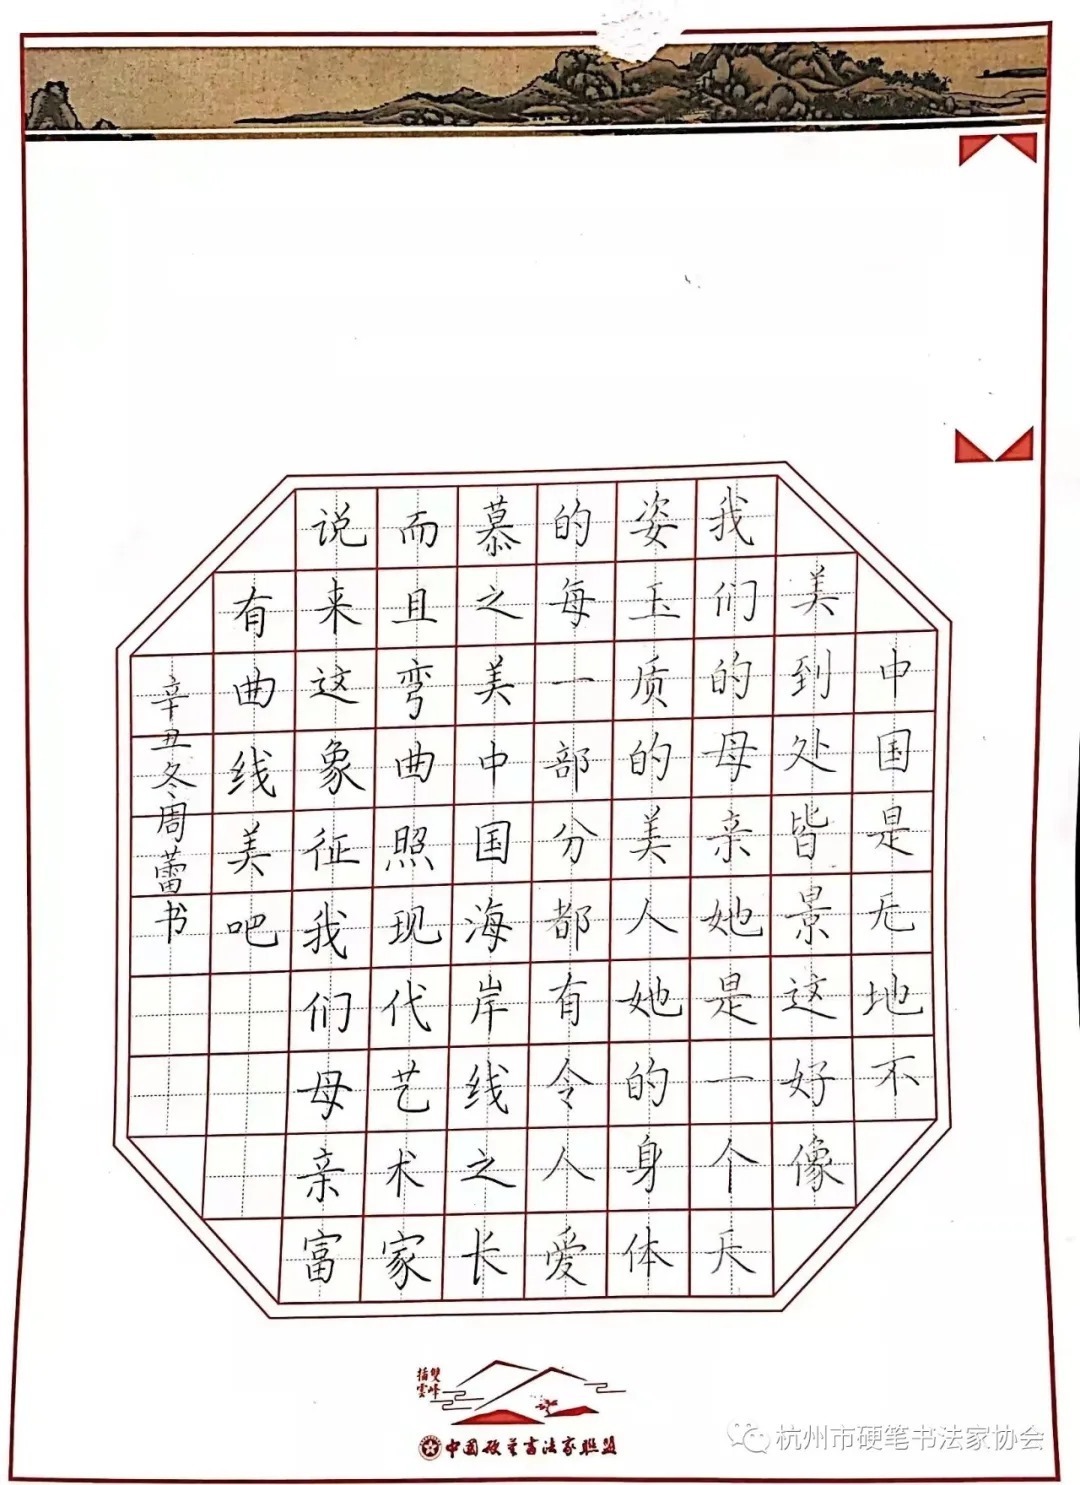 中国是无地不
美到处皆景这好像
我们的母亲她是一个天
姿玉质的美人她的身体
的每一部分都有令人爱
慕之美中国海岸线之长
而且弯曲照现代艺术家
说来这象征我们母亲富
有曲线美吧
辛丑冬周蕾书
雙峰
插雲
中国硬笔书法家联盟
杭州市硬笔书法家协会